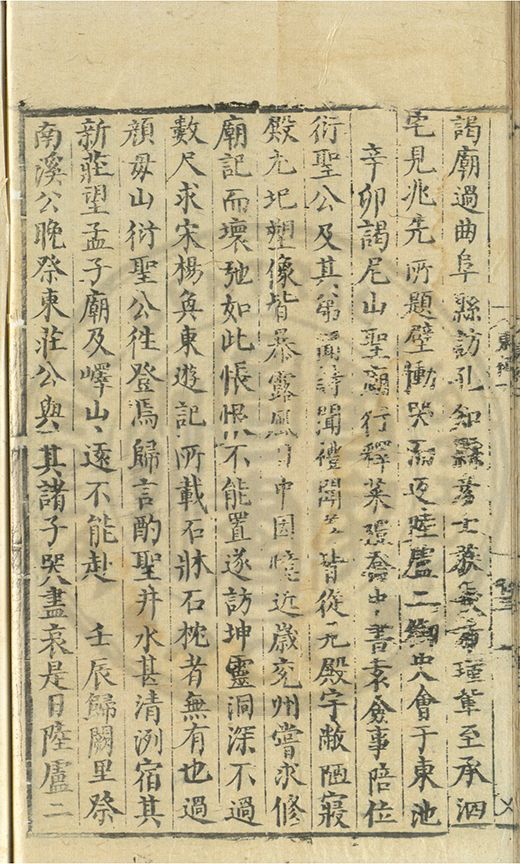 謁廟過曲阜縣訪孔知縣彥士族長者瑾輩至承泗
宅見兆先所題壁慟哭而返陸盧二御史會于東池
辛卯謁尼山聖廟行釋菜張僉史書袁僉事陪位
衍聖公及其弟聞詩聞禮聞 皆從元殿宇敝陋寢
殿尤圮塑像皆暴露風日中因憶近歲兗州嘗求修
廟記而壞弛如此悵恨不能置遂訪坤靈洞深不過
數尺求宋楊奐東遊記所載石牀石枕者無有也過
顏母山衍聖公徃登焉歸言酌聖井水甚清洌宿其
新莊望孟子廟及嶧山遠不能赴 壬辰歸闕里祭
南溪公晚祭東莊公與其諸子哭盡哀是日陸盧二